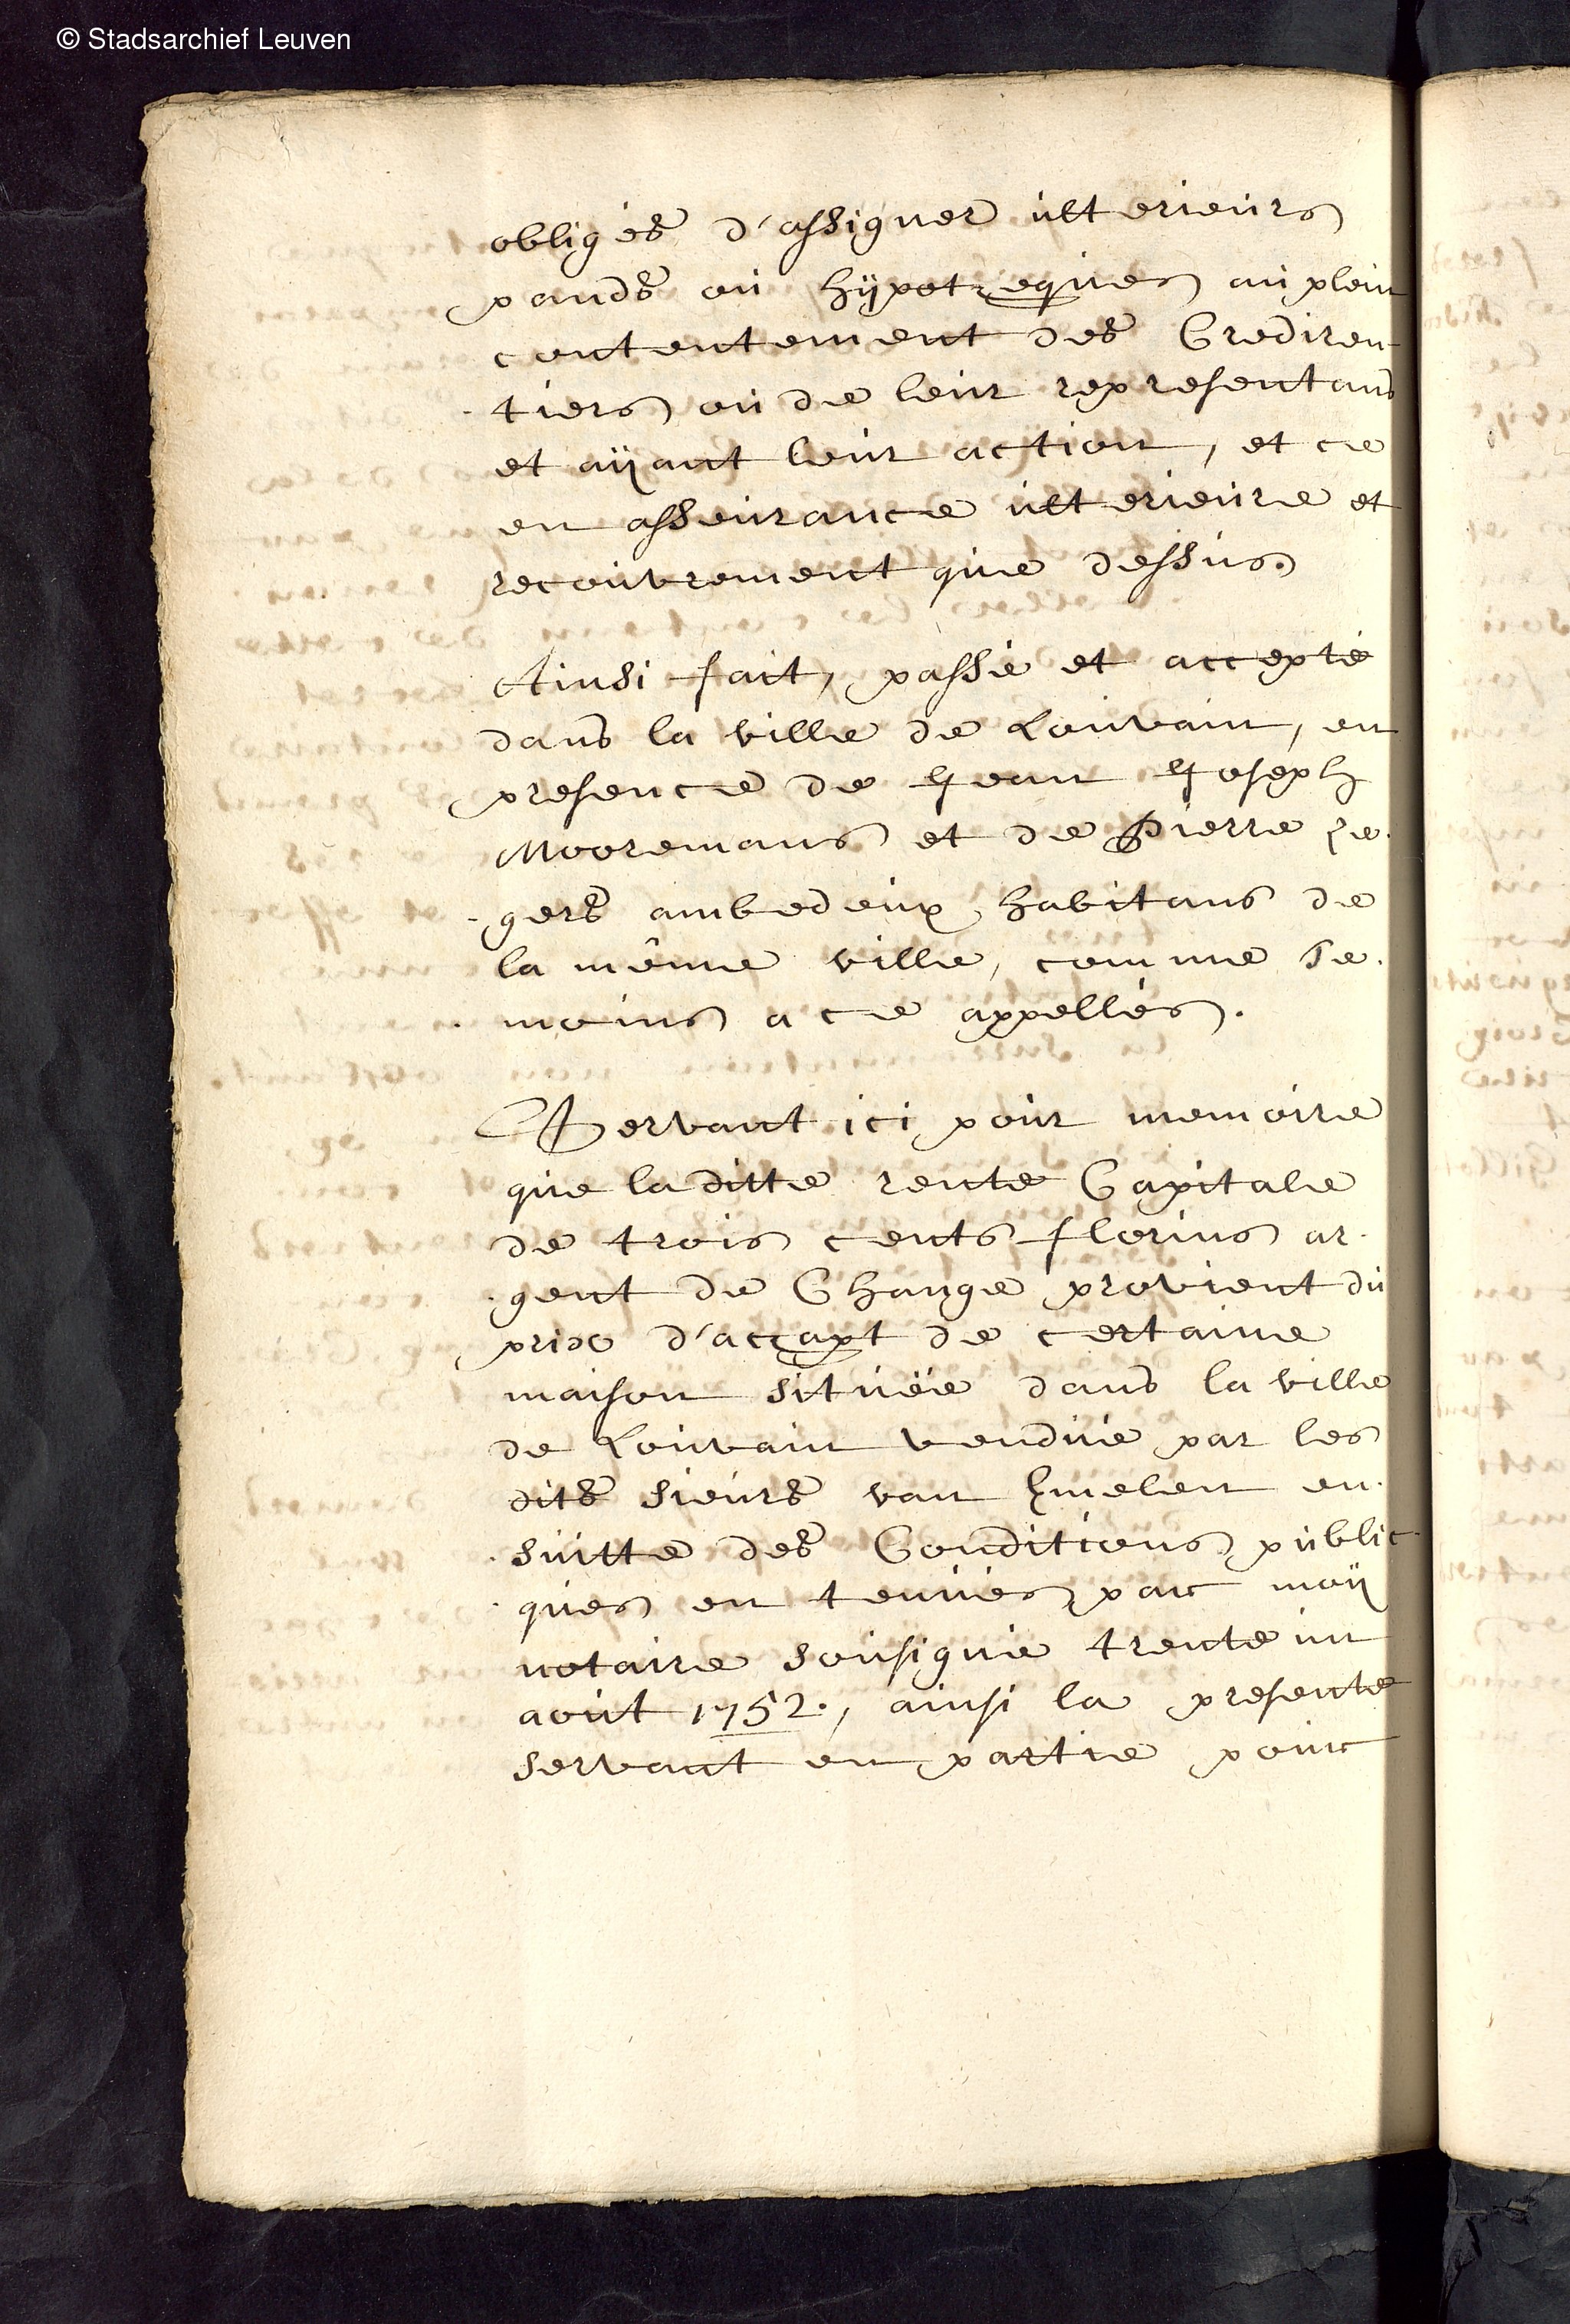 © Stadsarchief Leuven
obligés d'assigner ulterieurs
pands ou hÿpotheques au plein
contentement des Crediren
tiers ou de leur representans
et aÿant leur action, et ce
en asseurance ulterieure et
recouvrement que dessus.
Ainsi fait, passé et accepté
dans la ville de Louvain, en
presence de Jean Joseph
Mooremans et de Pierre Re-
gers ambedeux habitans de
la même ville, comme te-
moins a ce appellés.
Servant ici pour memoire
que la ditte rente Capitale
de trois cents florins ar-
gent de Change provient du
prix d'accapt de certaine
maison située dans la ville
de Louvain vendue par les
dits sieurs van en-
suitte des Conditions public
ques en tenues par moÿ
notaire sousigné trente un
aout 1752., ainsi la presente
servant en partie pour